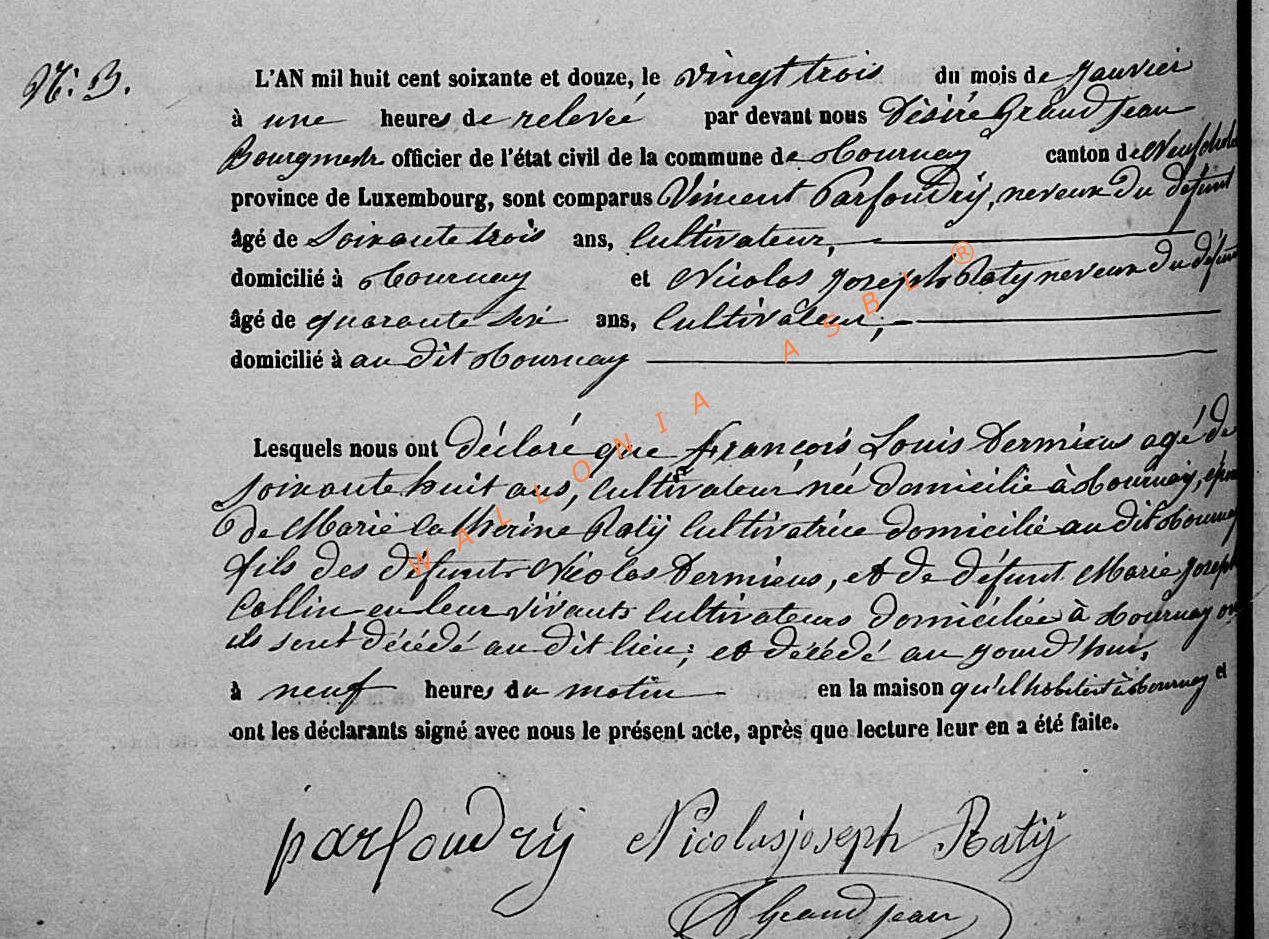 N° 3.
L'AN mil huit cent soixante et douze, le vingt trois du mois de Janvier
à une heures de relevée par devant nous Désiré Grand Jean
Bourgmestre officier de l'état civil de la commune de Tournay canton de Neufchateau
province de Luxembourg, sont comparus Vincent Parfoudrÿ, neveux du défunt
âgé de Soixante trois ans, Cultivateur,
domicilié à Tournay et Nicolas Joseph Raty neveux du défunt
âgé de quarante six ans, Cultivateur,
domicilié à au dit Tournay
Lesquels nous ont déclaré que François Louis Dermiens agé de
Soixante huit ans, Cultivateur née domicilié à Tournay,
de Marie Catherine Ratÿ Cultivatrice domicilié au dit Tournay
fils des défunts Nicolas Dermiens, et de défunt Marie Joseph
Collin en leur vivants Cultivateurs domiciliée à Tournay où
ils sont décédé au dit lieu; et décédé au jourd'hui,
à neuf heures du matin en la maison qu'il habitait à Tournay et
ont les déclarants signé avec nous le présent acte, après que lecture leur en a été faite.
parfoudrÿ Nicolas joseph Ratÿ
D Grand jean
WALLONIA ASBL ®